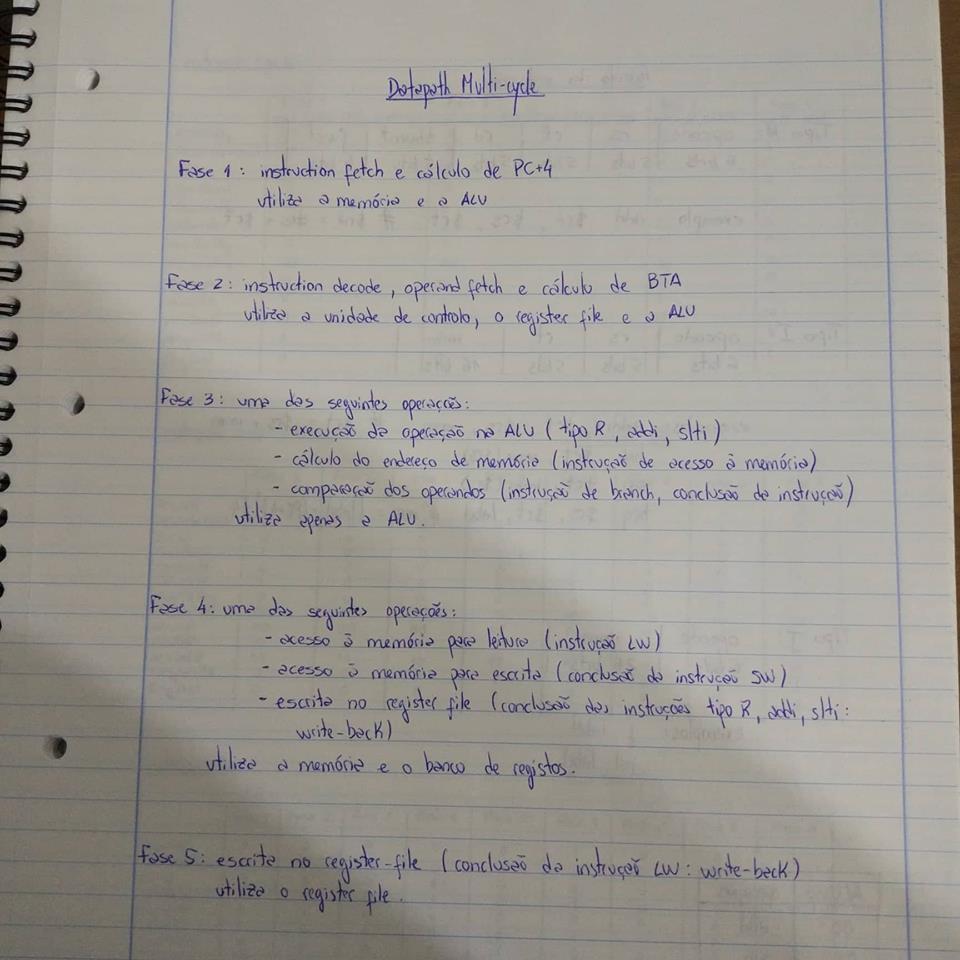 Datapath Multi-cycle
Fase 1: instruction fetch e cálculo de PC+4
utiliza a memória e a ALU
Fase 2: instruction decode, operand fetch e cálculo de BTA
utiliza a unidade de controlo, o register file e a ALU
Fase 3: uma das seguintes operações:
- execução da operação na ALU (tipo R, addi, slti)
- cálculo do endereço de memória (instrução de acesso à memória)
- comparação dos operandos (instrução de branch, conclusão da instrução)
utiliza apenas a ALU.
Fase 4: uma das seguintes operações:
- acesso à memória para leitura (instrução LW)
- acesso à memória para escrita (conclusão da instrução SW)
- escrita no register file (conclusão das instruções tipo R, addi, slti:
write-back)
utiliza a memória e o banco de registos.
Fase 5: escrita no register-file (conclusão da instrução LW: write-back)
utiliza o register file.